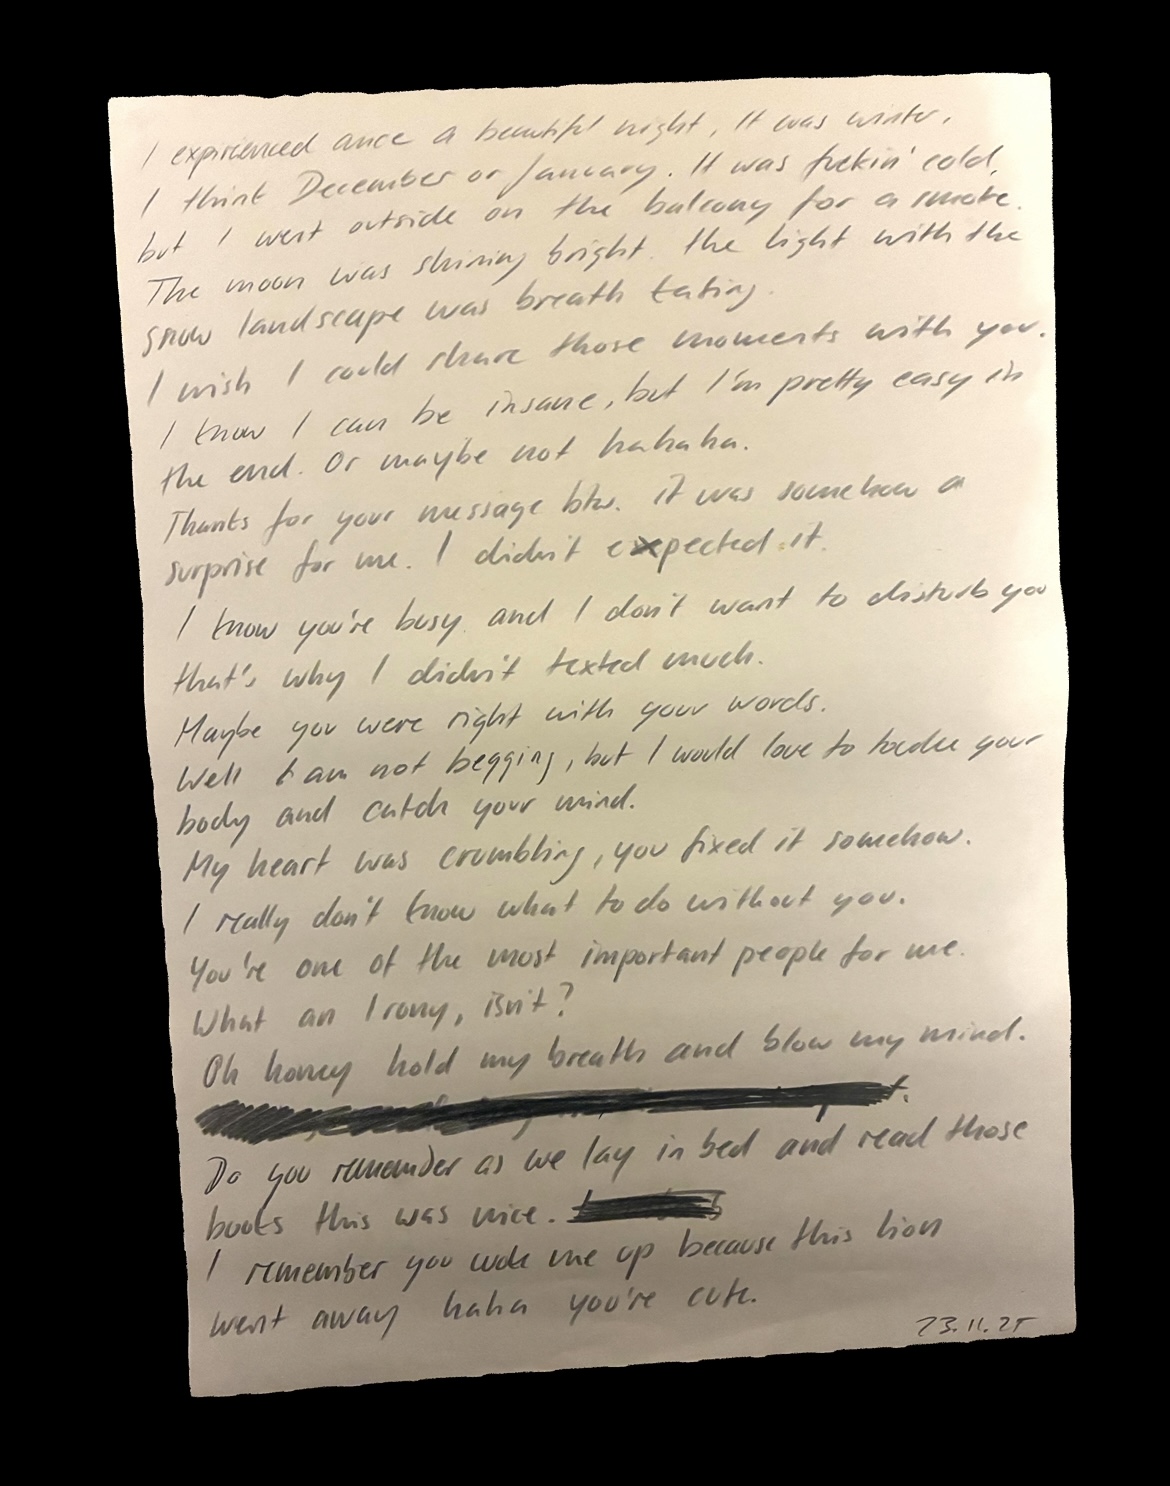 I expirienced once a beautiful night, It was winter,
I think December or January. It was fuckin' cold,
but I went outside on the balcony for a smoke.
The moon was shining bright. The light with the
snow landscape was breath taking.
I wish I could share those moments with you.
I know I can be insane, but I'm pretty easy in
the end. Or maybe not hahaha.
Thanks for your message btw. it was somehow a
surprise for me. I didn't expected it.
I know you're busy and I don't want to disturb you
that's why I didn't texted much.
Maybe you were right with your words.
Well I am not begging, but I would love to your
body and catch your mind.
My heart was crumbling, you fixed it somehow.
I really don't know what to do without you.
You're one of the most important people for me.
What an Irony, isn't?
Oh honey hold my breath and blow my mind.
Do you remember as we lay in bed and read those
books this was nice.
I remember you woke me up because this lion
went away haha you're cute.
23.11.25